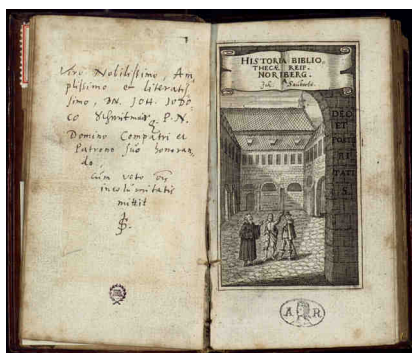 Viro Nobilissimo, Am
plissimo et literatis
simo, DN. JOH. JODO
co Schmidmair, P. N.
Domino Compatri et
Patrono suo honoran
do,
cum voto
incolumitatis
mittit
HISTORIA BIBLIO,
THECÆ REIP.
NORIBERG.
Joh. Sauberti.
DEO
ET
POSTE
RI
TATI
S.
A R